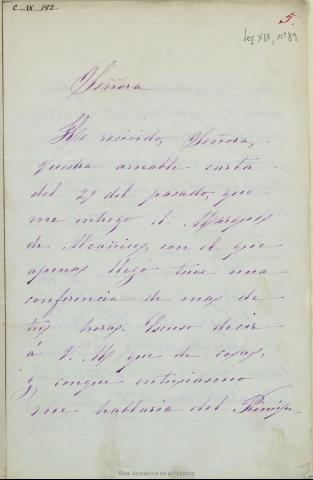 C-IX-182
5.
Leg. XIX, nº 89
Señora
He recivido, Señora,
amable carta
del 29 del pasado, que
me entregó el Marques
de Alcañices, con el que
apenas llegó tuve una
conferencia de mas de
tres horas. Escuso decir
á V. M. que de cosas,
y conque entusiasmo
me hablaria del Principe
Real Academia de la Historia